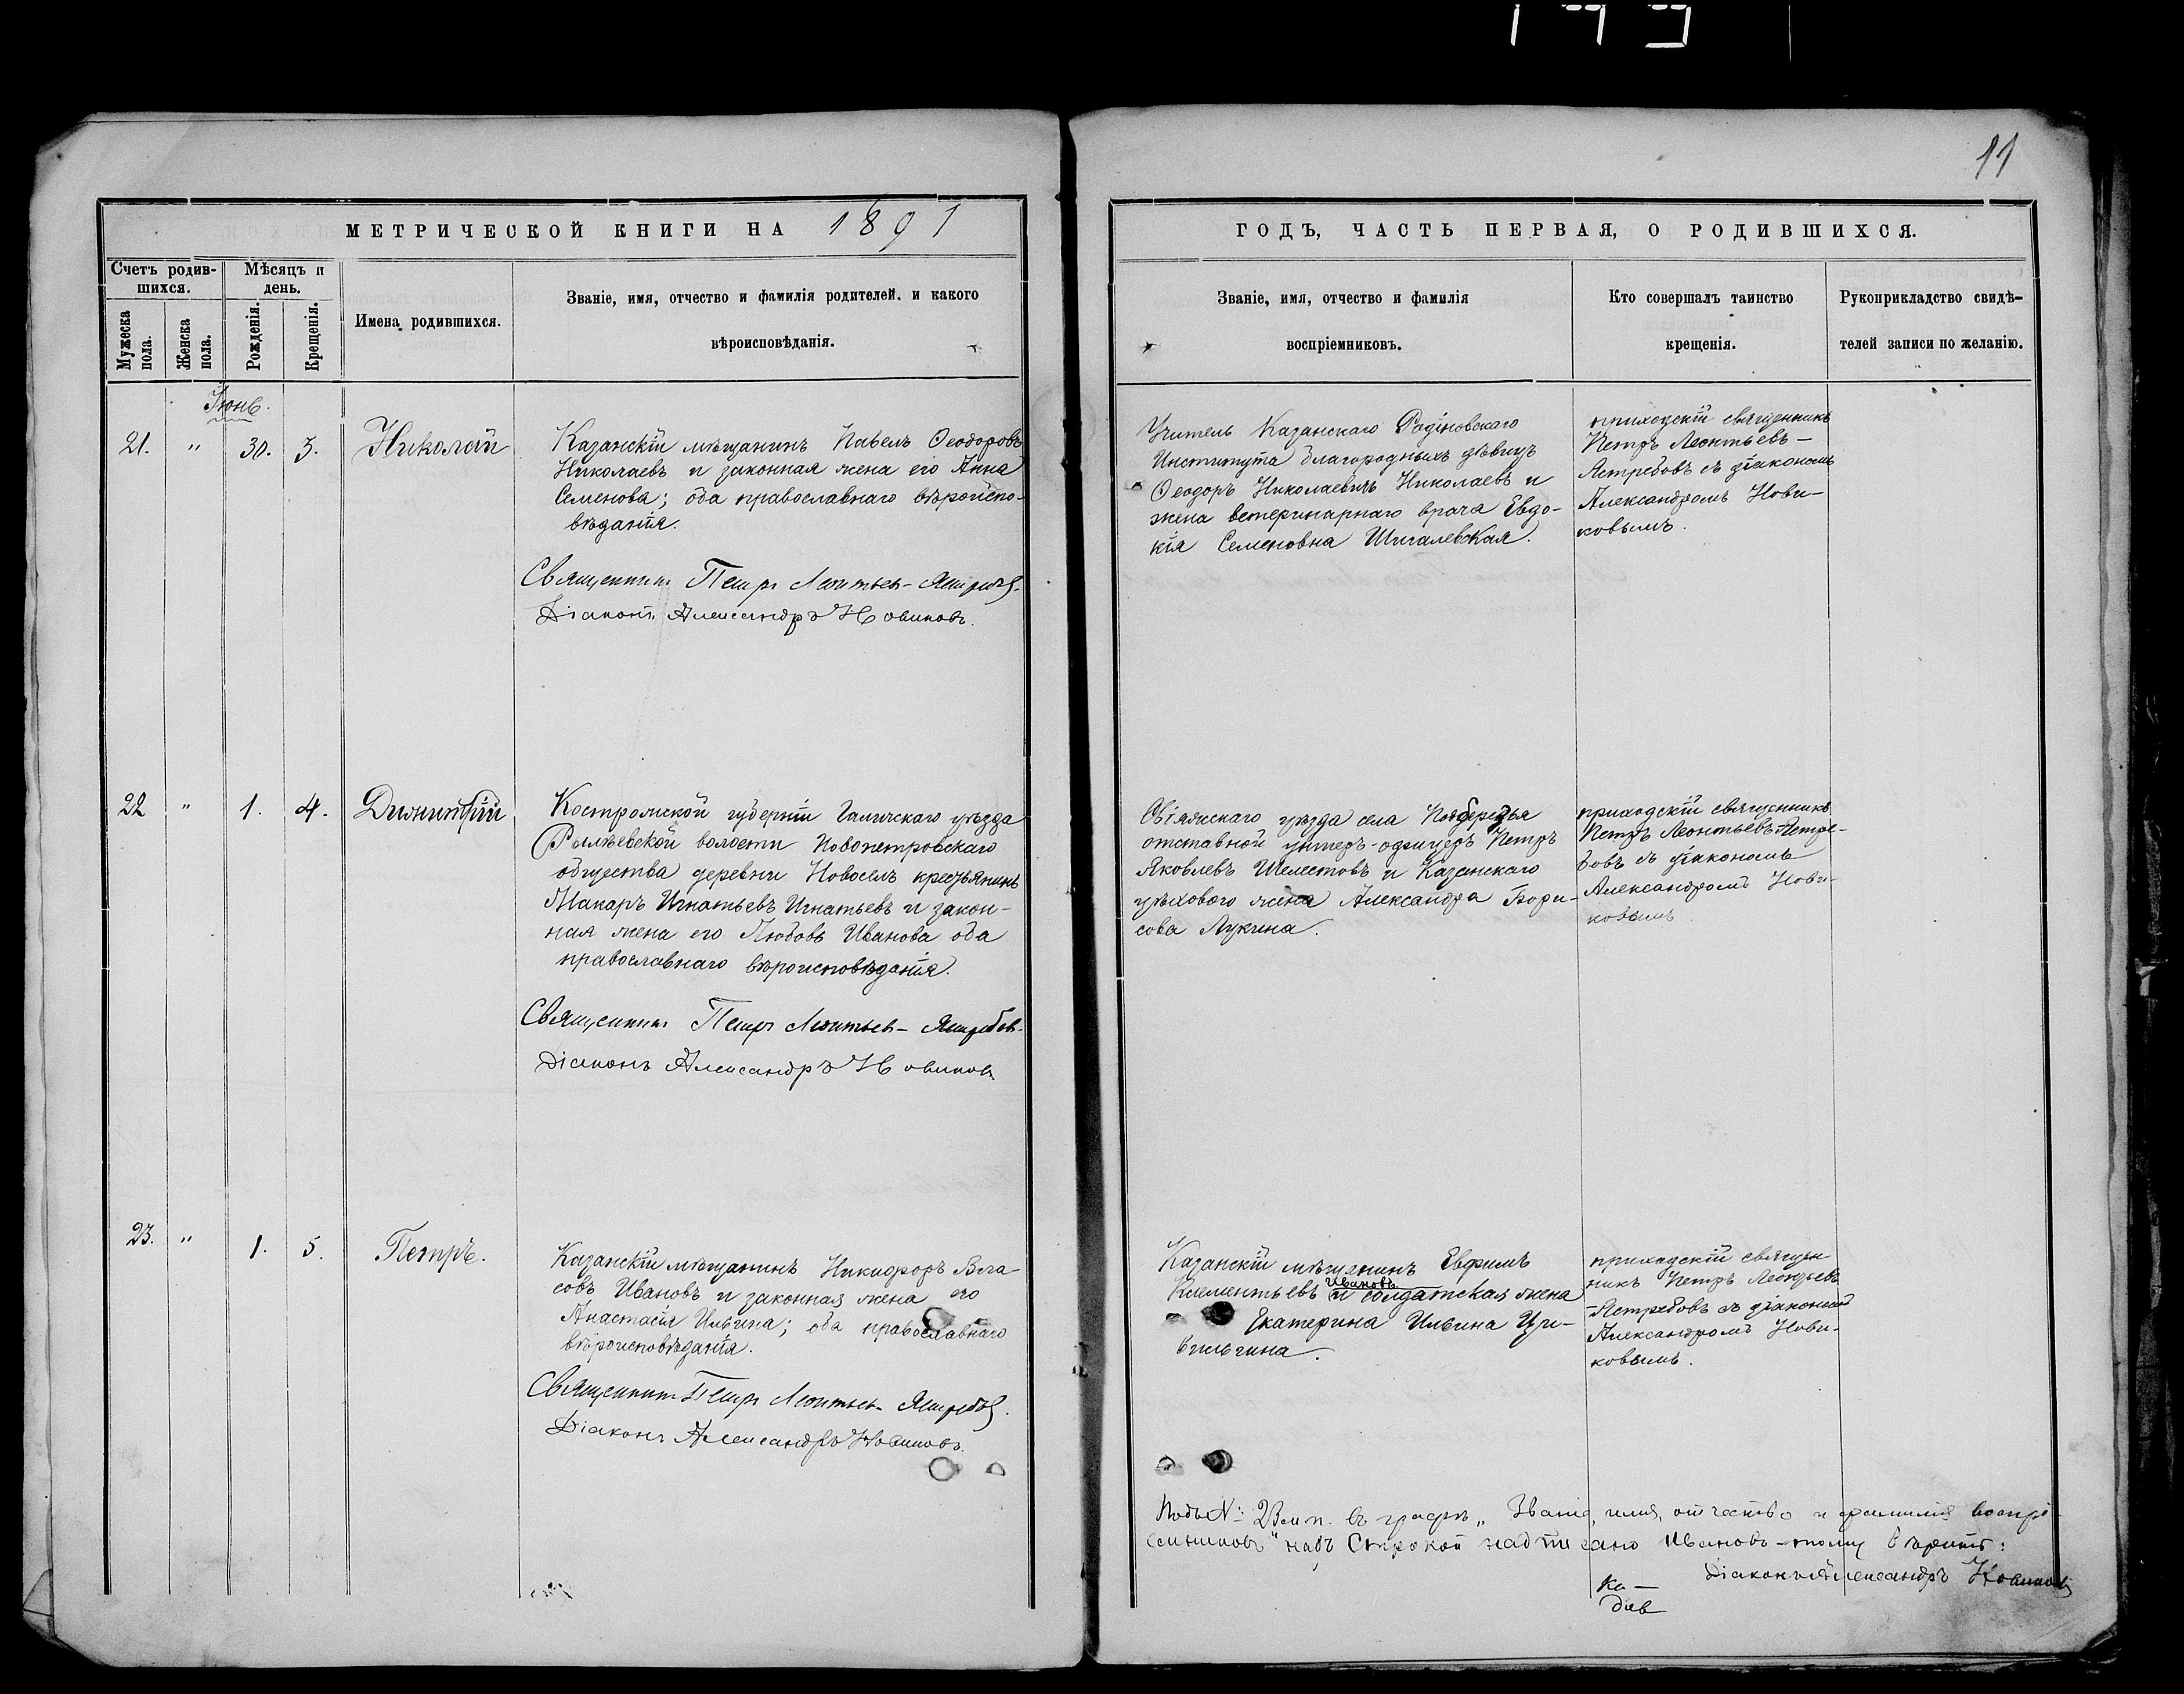 11
МЕТРИЧЕСКОЙ КНИГИ НА 1891
Счетъ родив-
шихся.
Мѣсяцъ и
день.
Мужеска
пола.
Женска
пола.
Рожденія.
Крещенія.
Имена родившихся.
Званіе, имя, отчество и фамилія родителей, и какого
вѣроисповѣданія.
Іюнь.
21. " 30. 3. Николай
Казанскій мѣщанинъ Павелъ Ѳеодоровъ
Николаевъ и законная жена его Анна
Семенова; оба православнаго вѣроиспо-
вѣданія.
Священникъ Петръ Леонтьевъ-Ястребовъ.
Діаконъ Александръ Новиковъ.
22 " 1. 4. Димитрій
Костромской губерніи Галичскаго уѣзда
волости Новопетровскаго
общества деревни Новоселъ крестьянинъ
Макаръ Игнатьевъ Игнатьевъ и закон-
ная жена его Любовь Иванова оба
православнаго вѣроисповѣданія.
Священникъ Петръ Леонтьевъ-Ястребовъ.
Діаконъ Александръ Новиковъ
23. " 1. 5. Петръ.
Казанскій мѣщанинъ Никифоръ Вла-
совъ Ивановъ и законная жена его
Анастасія Ильина; оба православнаго
вѣроисповѣданія.
Священникъ Петръ Леонтьевъ-Ястребовъ.
Діаконъ Александръ Новиковъ.
ГОДЪ, ЧАСТЬ ПЕРВАЯ, О РОДИВШИХСЯ.
Званіе, имя, отчество и фамилія
воспріемниковъ.
Кто совершалъ таинство
крещенія.
Рукоприкладство свидѣ-
телей записи по желанію.
Учитель Казанскаго Родіоновскаго
Института благородныхъ дѣвицъ
Ѳеодоръ Николаевичъ Николаевъ и
жена ветеринарнаго врача Евдо-
кія Семеновна Шигалевская.
приходскій священникъ
Петръ Леонтьевъ-
Ястребовъ съ діакономъ
Александромъ Нови-
ковымъ.
Свіяжскаго уѣзда села
отставной унтеръ-офицеръ Петръ
Яковлевъ Шелестовъ и Казанскаго
цѣхового жена Александра Бори-
сова Лукина.
приходскій священникъ
Петръ Леонтьевъ-Ястре-
бовъ съ діакономъ
Александромъ Нови-
ковымъ
Казанскій мѣщанинъ Евфимъ
Ивановъ
Климентьевъ и солдатская жена
Екатерина Ильина Ци-
вильгина.
приходскій священ-
никъ Петръ Леонтьевъ
-Ястребовъ съ діакономъ
Александромъ Нови-
ковымъ.
Подъ №: 23 м п. въ графѣ „Званіе, имя, отчество и фамилія воспрі-
емниковъ" надъ строкой надписано Ивановъ - тому вѣрить:
Діаконъ Александръ Новиковъ